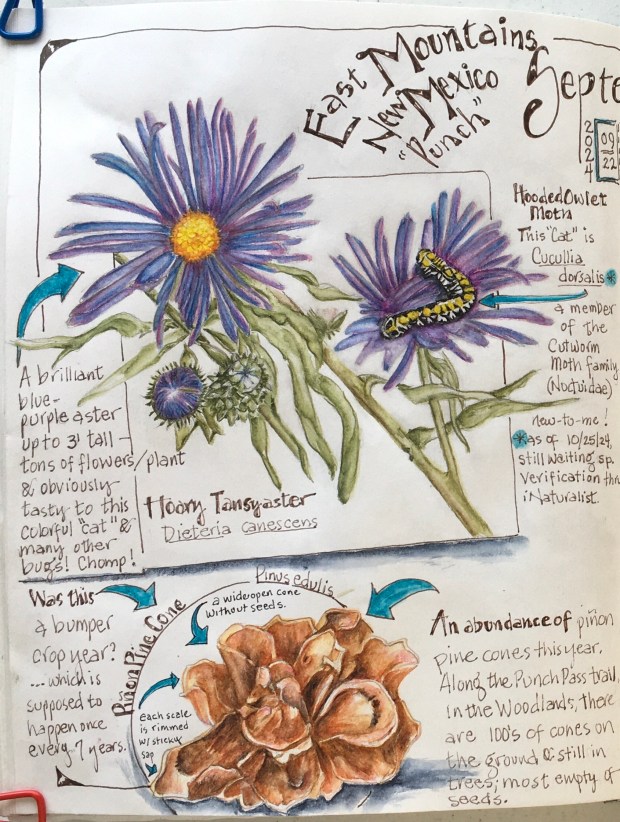 East Mountains
New Mexico
"Punch"
Septe
2024
09
22
Hooded Owlet
Moth
This "Cat" is
Cucullia
dorsalis *
a member
of the
Cutworm
Moth Family
(Noctuidae)
new-to-me!
* as of 10/25/24,
still waiting sp.
verification thru
iNaturalist.
A brilliant
blue-
purple aster
up to 3' tall -
tons of flowers/plant
& obviously
tasty to this
colorful "cat" &
many other
bugs! Chomp!
Hoary Tansyaster
Dieteria canescens
Was this
a bumper
crop year?
...which is
supposed to
happen once
every 7 years.
Piñon Pine Cone
Pinus edulis
a wide open cone
without seeds.
Each scale
is rimmed
w/ sticky
sap
An abundance of piñon
pine cones this year.
Along the Punch Pass trail,
in the Woodlands, there
are 100's of cones on
the ground & still in
trees; most empty of
seeds.